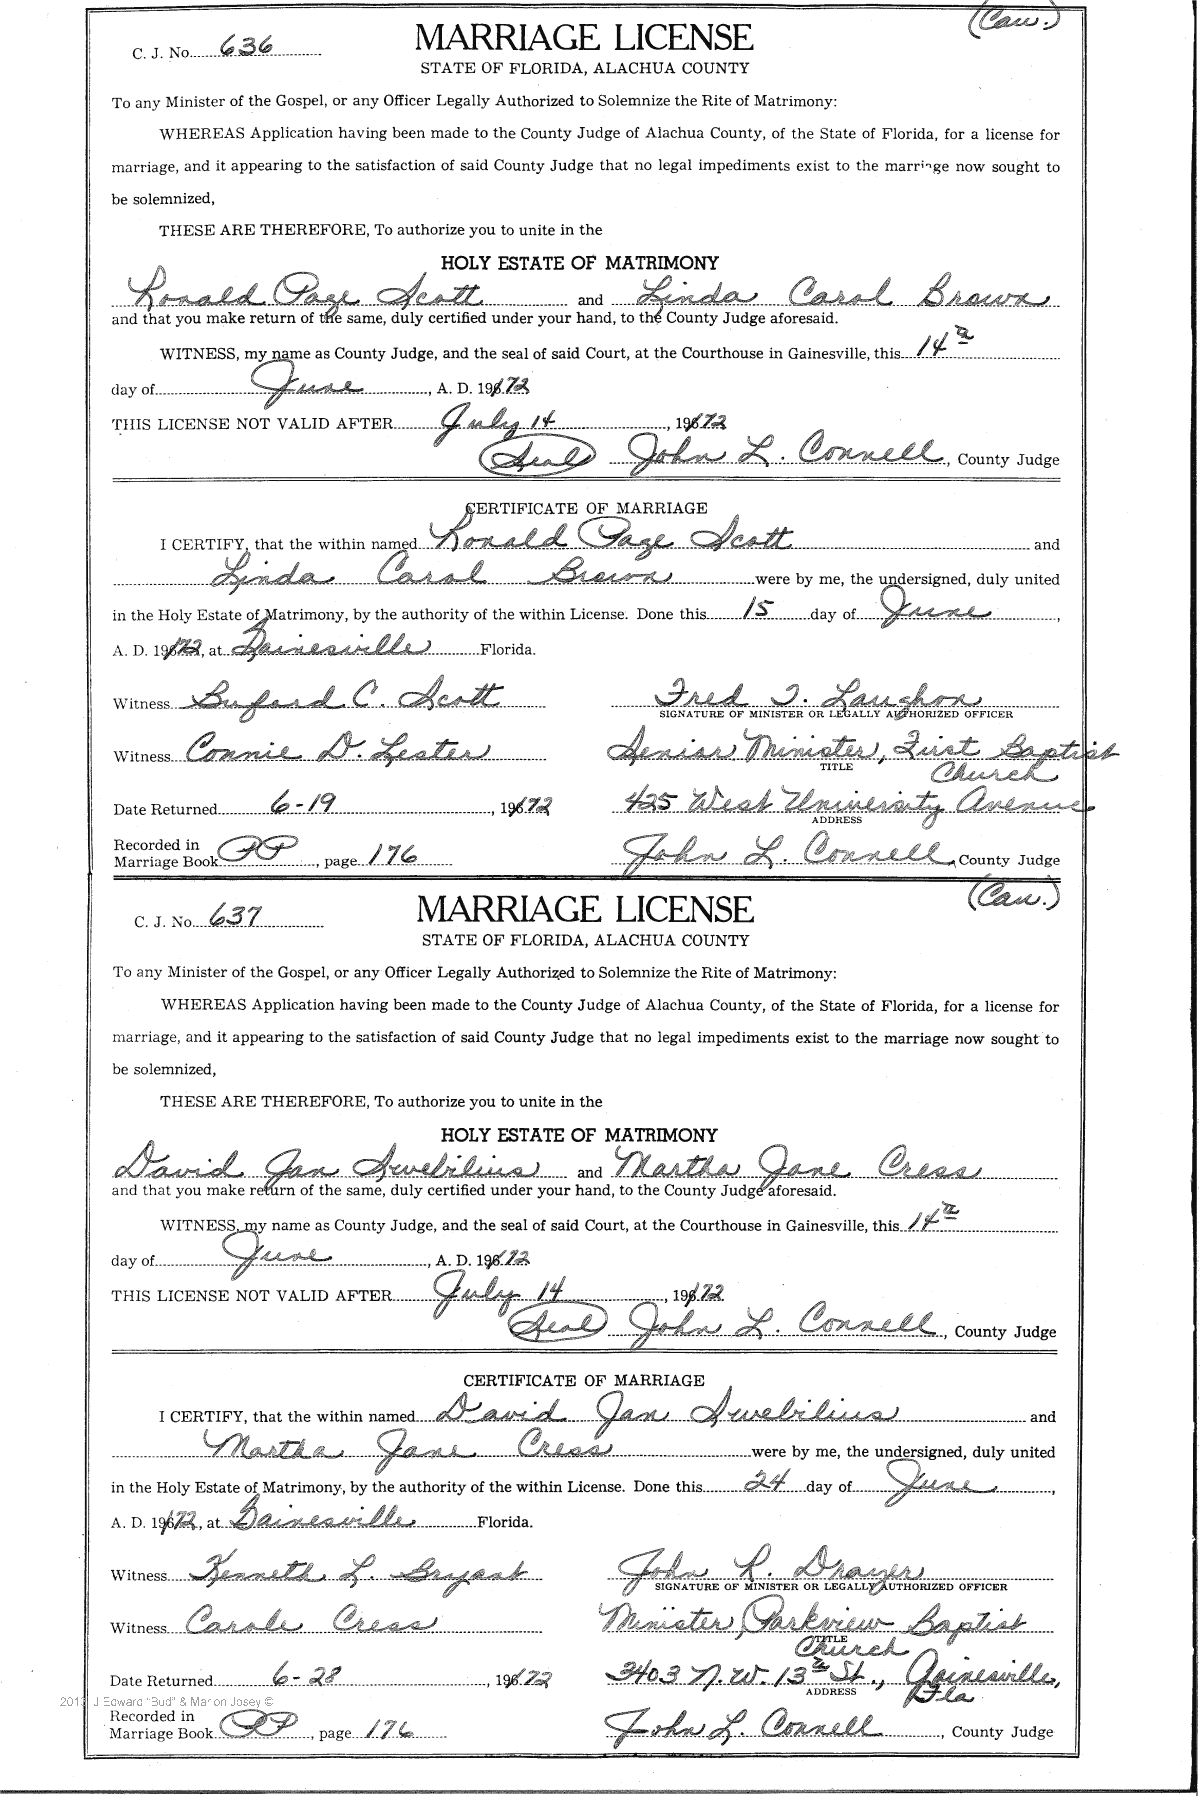 (Cau.)
C. J. No. 636 MARRIAGE LICENSE
STATE OF FLORIDA, ALACHUA COUNTY
To any Minister of the Gospel, or any Officer Legally Authorized to Solemnize the Rite of Matrimony:
WHEREAS Application having been made to the County Judge of Alachua County, of the State of Florida, for a license for
marriage, and it appearing to the satisfaction of said County Judge that no legal impediments exist to the marriage now sought to
be solemnized,
THESE ARE THEREFORE, To authorize you to unite in the
HOLY ESTATE OF MATRIMONY
Ronald Page Scott and Linda Carol Brown
and that you make return of the same, duly certified under your hand, to the County Judge aforesaid.
WITNESS, my name as County Judge, and the seal of said Court, at the Courthouse in Gainesville, this 14th
day of June, A. D. 1972
THIS LICENSE NOT VALID AFTER July 14, 1972
(Seal) John L. Connell, County Judge
CERTIFICATE OF MARRIAGE
I CERTIFY, that the within named Ronald Page Scott and
Linda Carol Brown were by me, the undersigned, duly united
in the Holy Estate of Matrimony, by the authority of the within License. Done this 15 day of June,
A. D. 1972, at Gainesville Florida.
Witness Buford C. Scott Fred T. Laughon
SIGNATURE OF MINISTER OR LEGALLY AUTHORIZED OFFICER
Witness Connie D. Lester Senior Minister, First Baptist
TITLE Church
Date Returned 6-19, 1972 425 West University Avenue
ADDRESS
Recorded in
Marriage Book PP, page 176 John L. Connell, County Judge
(Cau.)
C. J. No. 637 MARRIAGE LICENSE
STATE OF FLORIDA, ALACHUA COUNTY
To any Minister of the Gospel, or any Officer Legally Authorized to Solemnize the Rite of Matrimony:
WHEREAS Application having been made to the County Judge of Alachua County, of the State of Florida, for a license for
marriage, and it appearing to the satisfaction of said County Judge that no legal impediments exist to the marriage now sought to
be solemnized,
THESE ARE THEREFORE, To authorize you to unite in the
HOLY ESTATE OF MATRIMONY
David Jan Swebilius and Martha Jane Cress
and that you make return of the same, duly certified under your hand, to the County Judge aforesaid.
WITNESS, my name as County Judge, and the seal of said Court, at the Courthouse in Gainesville, this 14th
day of June, A. D. 1972
THIS LICENSE NOT VALID AFTER July 14, 1972
(Seal) John L. Connell, County Judge
CERTIFICATE OF MARRIAGE
I CERTIFY, that the within named David Jan Swebilius and
Martha Jane Cress were by me, the undersigned, duly united
in the Holy Estate of Matrimony, by the authority of the within License. Done this 24 day of June,
A. D. 1972, at Gainesville Florida.
Witness Kenneth L. Bryant John R. Drayer
SIGNATURE OF MINISTER OR LEGALLY AUTHORIZED OFFICER
Witness Carole Cress Minister, Parkview Baptist
TITLE Church
Date Returned 6-28, 1972 3403 N.W. 13th St., Gainesville,
ADDRESS Fla
2013 J Edward "Bud" & Marion Josey ©
Recorded in
Marriage Book PP, page 176 John L. Connell, County Judge